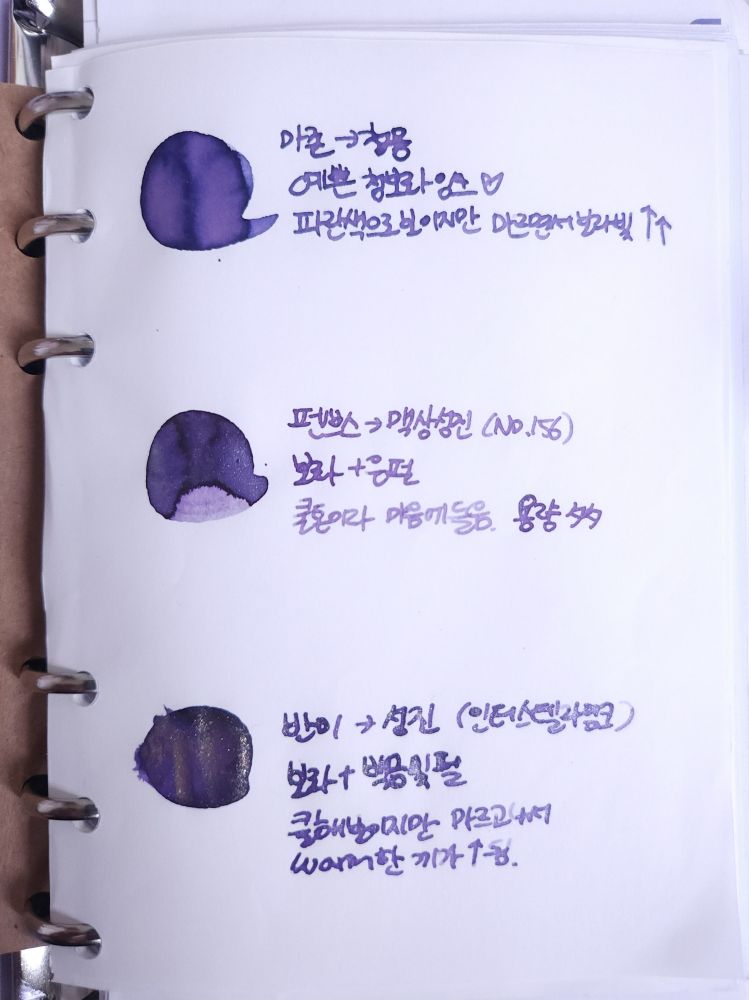 마론 → 청용
예쁜 청보라 잉크 ♡
파란색으로 보이지만 마르면서 보라빛 ↑↑
펜뽀스 → 맥상성진 (NO.156)
보라 + 은펄
쿨톤이라 마음에 듦. 용량
반이 → 성진 (인터스텔라
보라 + 펄
쿨해보이지만 마르고나서
warm한 끼가 ↑함.